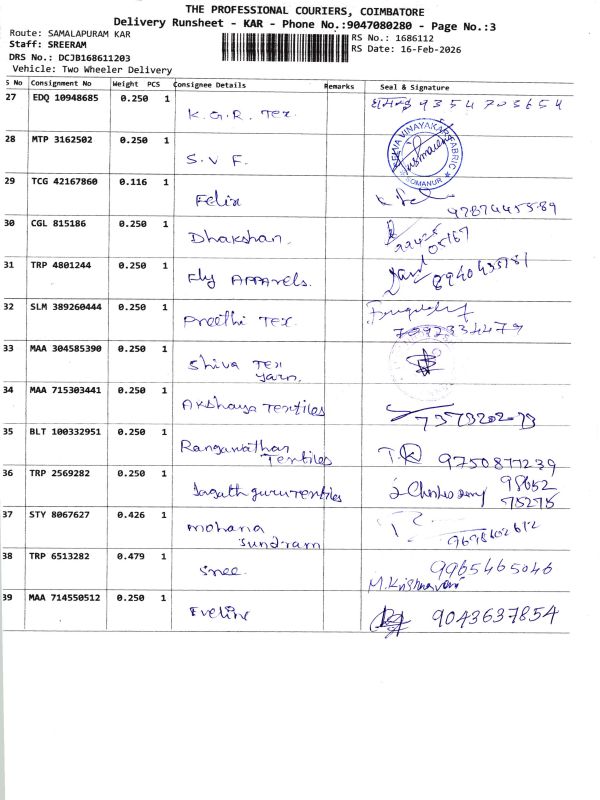 THE PROFESSIONAL COURIERS, COIMBATORE
Delivery Runsheet - KAR - Phone No.:9047080280 - Page No.:3
Route: SAMALAPURAM KAR
Staff: SREERAM
DRS No.: DCJB168611203
Vehicle: Two Wheeler Delivery
RS No.: 1686112
RS Date: 16-Feb-2026
S No Consignment No Weight PCS Consignee Details Remarks Seal & Signature
27 EDQ 10948685 0.250 1 K.G.R. Tex. 9354703654
28 MTP 3162502 0.250 1 S.V F.
SOMANUR
29 TCG 42167860 0.116 1 Felix
30 CGL 815186 0.250 1 Dhakshan.
31 TRP 4801244 0.250 1 Fly APPArels.
32 SLM 389260444 0.250 1 Preethi Tex.
7092334479
33 MAA 304585390 0.250 1 Shiva Tex
Yarn.
34 MAA 715303441 0.250 1 Akshaya Textiles
35 BLT 100332951 0.250 1 Ranganathan
Textiles
T.K 9750877239
36 TRP 2569282 0.250 1 Jagath guru Textiles
37 STY 8067627 0.426 1 mohana
Sundram
38 TRP 6513282 0.479 1 Sree. 9965465046
39 MAA 714550512 0.250 1 Eveline 9043637854